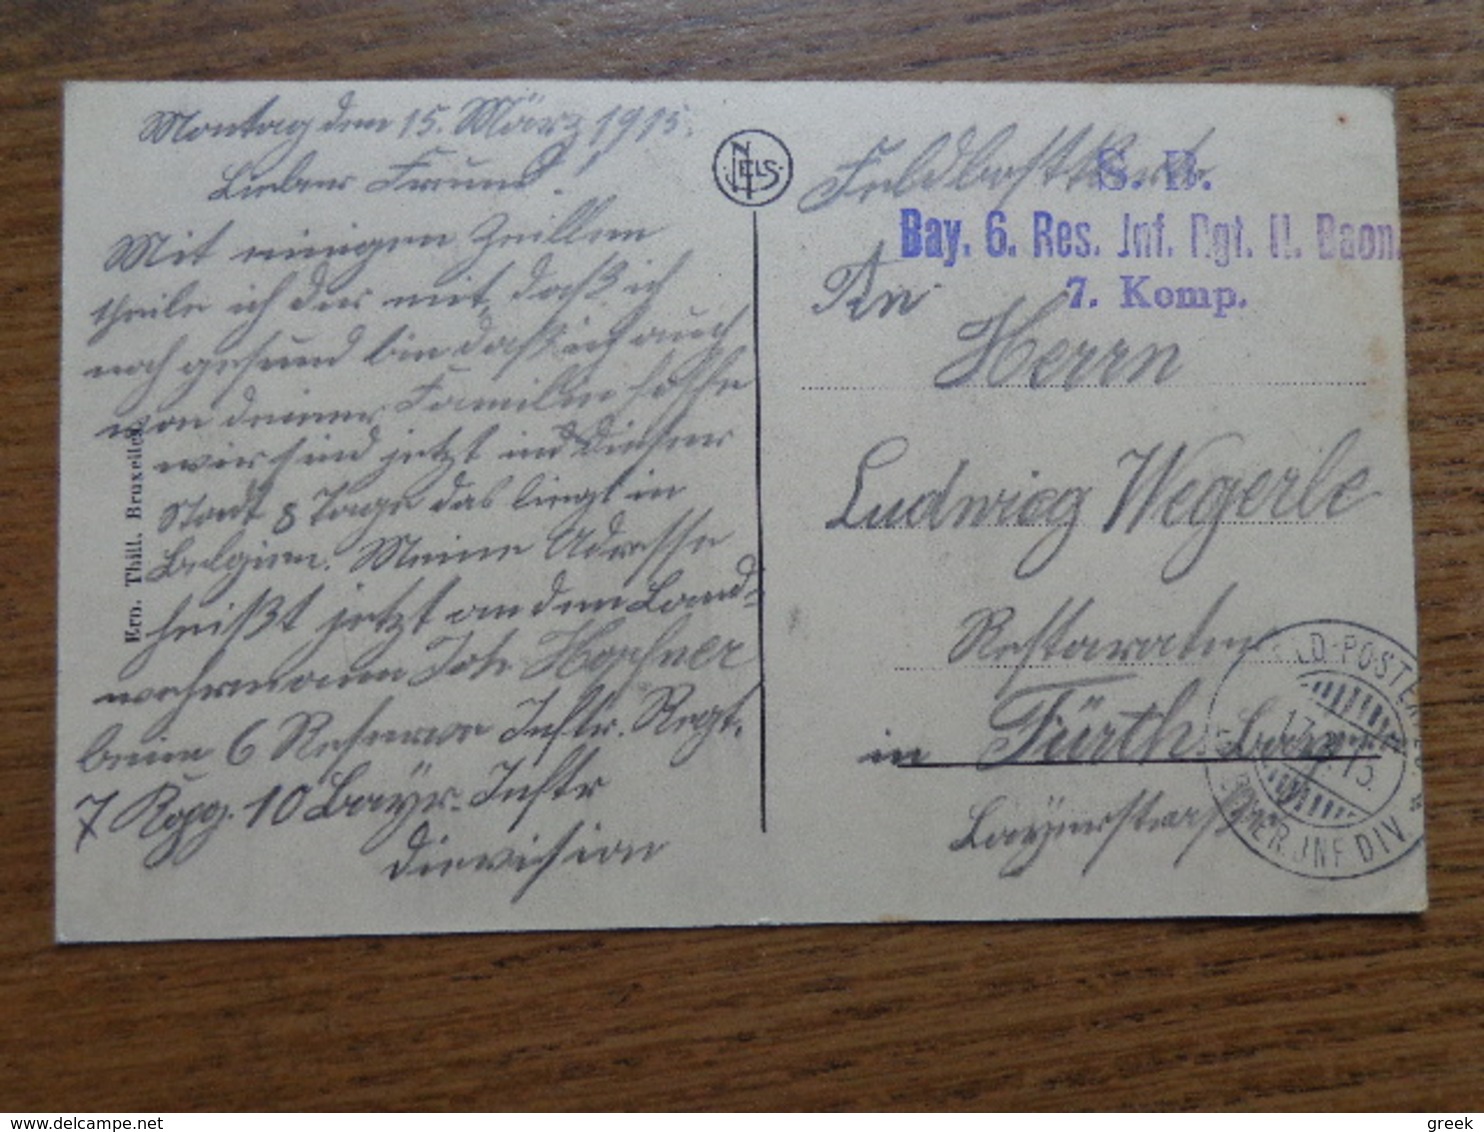 Montag den 15. März 1915.
Lieber Freund!
Mit einigen Zeillen
theile ich dir mit, daß ich
noch gesund bin daß ich auch
von deiner Familie hoffe
wir sind jetzt in dieser
Stadt 8 Tage das liegt in
Belgien. Meine Adresse
heißt jetzt an den Land-
wehrmann Joh. Hopfner
beim 6 Reserve Inftr. Regt.
7 Kpg. 10 Bayr. Inftr
Divvision
Ern. Thill. Bruxelles.
NELS
Feldbostkarte
S. B.
Bay. 6. Res. Inf. Rgt. II. Baon.
7. Komp.
An
Herrn
Ludwieg Wegerle
in Fürth Bay
Bayerstraße
FELD-POSTEXP
17. 15.
INF DIV
delcampe.net
greek